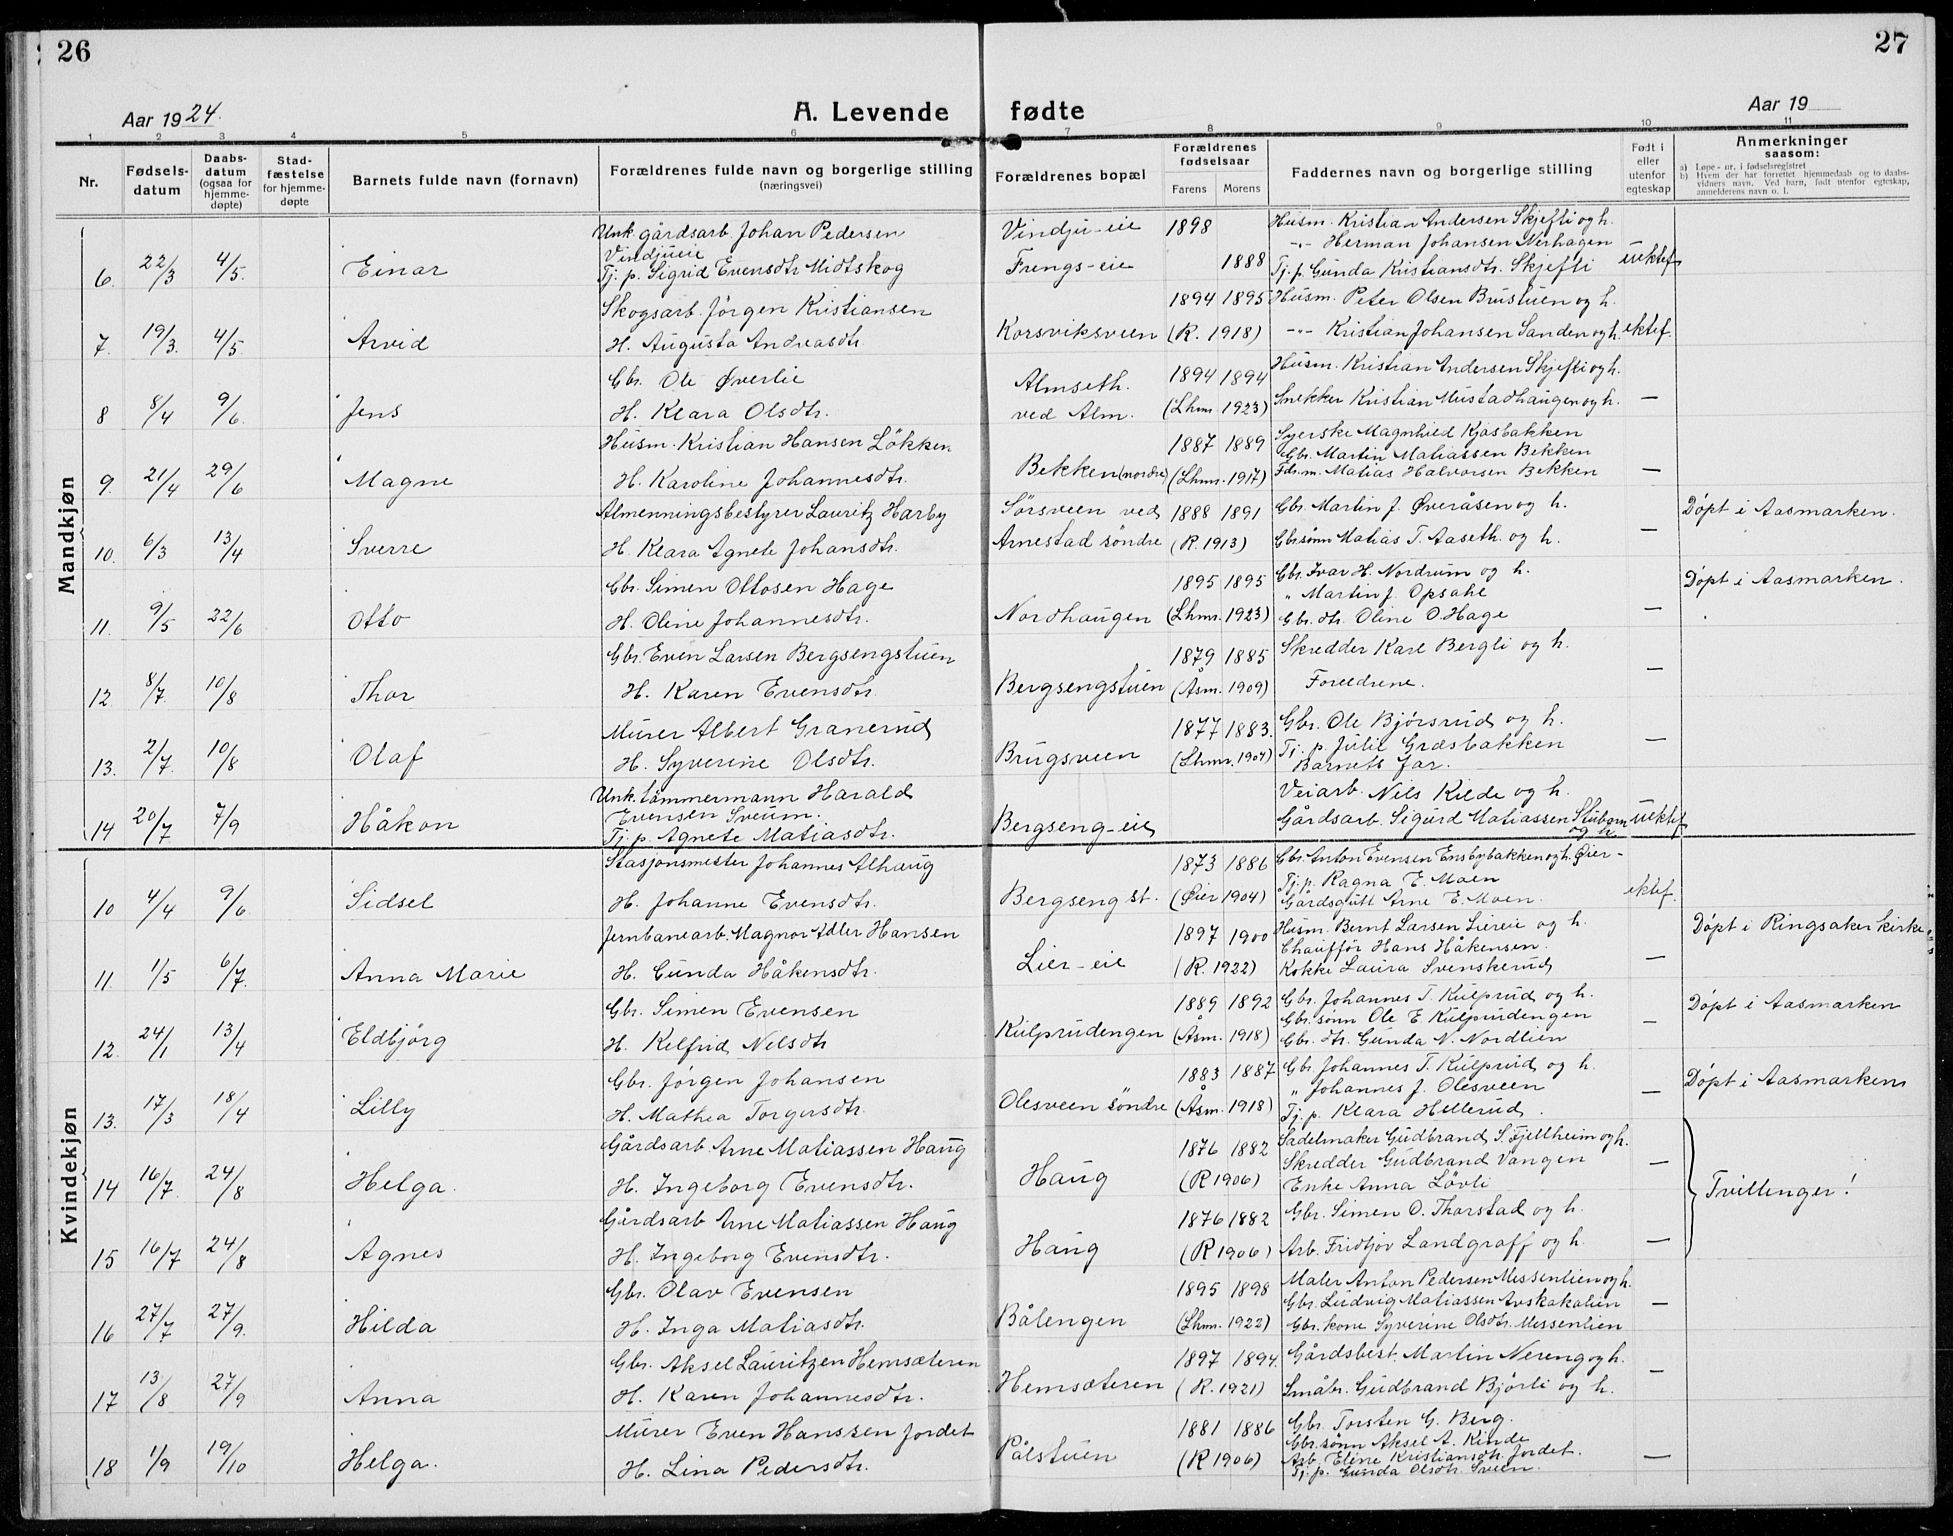 26
27
Aar 1924.
A. Levende fødte
Aar 19
1 2 3 4 5 6 7 8 9 10 11
Nr.
Fødsels-
datum
Daabs-
datum
(ogsaa for
hjemme-
døpte)
Stad-
fæstelse
for hjemme-
døpte
Barnets fulde navn (fornavn)
Forældrenes fulde navn og borgerlige stilling
(næringsvei)
Forældrenes bopæl
Forældrenes
fødselsaar
Farens Morens
Faddernes navn og borgerlige stilling
Født i
eller
utenfor
egteskap
Anmerkninger
saasom:
a) Løpe-nr. i fødselsregistret
b) Hvem der har forrettet hjemmedaab og to daabs-
vidners navn. Ved barn, født utenfor egteskap,
anmelderens navn o. l.
Mandkjøn
Unk. gårdsarb. Johan Pedersen Vindju-eie 1898 Husm. Kristian Andersen Skjefli og h.
Vindjueie -"- Herman Johansen Nerhagen
6. 22/3 4/5. Einar Tj. p. Sigrid Evensdtr Midtskog Frengs-eie 1888 Tj. p. Gunda Kristiansdtr. Skjefli uektef
Skogsarb. Jørgen Kristiansen 1894 1895 Husm. Peter Olsen Brustuen og h.
7. 19/3. 4/5. Arvid H. Augusta Andreasdtr. Korsviksveen (R. 1918) -"- Kristian Johansen Sanden og h. ektef.
Gbr. Ole Øverlie Almseth. 1894 1894 Husm. Kristian Andersen Skjefli og h.
8 8/4 9/6. Jens H. Klara Olsdtr. ved Alm. (Lhmr. 1923) Snekker Kristian Mustadhaugen og h. —
Husm. Kristian Hansen Løkken 1887 1889 Syerske Magnhild Kjosbakken
Gbr. Martin Matiassen Bekken
9. 21/4 29/6 Magne H. Karoline Johannesdtr. Bekken (nordre) (Lhmr. 1917) Fdr.m. Matias Halvorsen Bekken —
Almenningsbestyrer Lauritz Harby Sørsveen ved 1888 1891 Gbr. Martin J. Øveråsen og h. Døpt i Aasmarken.
10. 6/3 13/4 Sverre H. Klara Agnete Johansdtr. Arnestad søndre (R. 1913) Gbr.sønn Matias T. Aaseth. og h. —
Gbr. Simen Ottosen Hage 1895 1895 Gbr. Ivar H. Nordrum og h. Døpt i Aasmarken.
" Martin J. Opsahe
11. 9/5 22/6 Otto H. Oline Johannesdtr. Nordhaugen (Lhmr. 1923) Gbr. dtr. Oline O. Hage —
Gbr. Even Larsen Bergsengstuen 1879 1885 Skredder Karl Bergli og h.
12. 8/7. 10/8 Thor H. Karen Evensdtr. Bergsengstuen (Åsm. 1909) Foreldrene. —
Murer Albert Granerud 1877 1883. Gbr. Ole Bjørsrud og h.
Tj. p. Julie Græsbakken
13. 2/7. 10/8 Olaf H. Syverine Olsdtr. Brugsveen (Lhmr. 1904) Barnets far. —
Unk. tømmermann Harald Veiarb. Nils Kilde og h.
Evensen Sveum.
14 20/7 7/9 Håkon Tj. p. Agnete Matiasdtr. Bergseng-eie Gårdsarb. Sigurd Matiassen Stubern og h. uektef
Kvindekjøn
Stasjonsmester Johannes Alhaug 1873 1886 Gbr. Anton Evensen Ensbybakken og h. Øier-
Tj. p. Ragna E. Moen
10 4/4 9/6. Sidsel H. Johanne Evensdtr. Bergseng st. (Øier 1904) Gårdsgutt Arne E. Moen. ektef.
Jernbanearb. Magnor Adler Hansen 1897 1900 Husm. Bernt Larsen Liereie og h. Døpt i Ringsaker kirke
Chauffør Hans Håkensen.
11. 1/5 6/7. Anna Marie H. Gunda Håkensdtr. Lier-eie (R. 1922) Kokke Laura Svenskerud —
Gbr. Simen Evensen 1889 1892 Gbr. Johannes T. Kulprud og h. Døpt i Aasmarken
Gbr. sønn Ole E. Kulprudengen
12. 24/1 13/4 Eldbjørg H. Kelfrid Nelsdtr Kulprudengen (Åsm. 1918) Gbr. dtr. Gunda N. Nordlien —
Gbr. Jørgen Johansen 1883 1887 Gbr. Johannes T. Kulprud og h. Døpt i Aasmarken
" Johannes J. Olesveen
13. 17/3 18/4 Lilly H. Mathea Torgersdtr. Olesveen søndre (Åsm. 1918) Tj. p. Klara Hellerud. —
Gårdsarb. Arne Matiassen Haug 1876 1882 Sadelmaker Gudbrand S. Fjellheim og h.
Skredder Gudbrand Vangen
14 16/7. 24/8 Helga. H. Ingeborg Evensdtr. Haug (R 1906) Enke Anna Løvli — Tvillenger!
Gårdsarb. Arne Matiassen Haug 1876 1882 Gbr. Simen O. Thorstad og h.
15 16/7 24/8 Agnes H. Ingeborg Evensdtr. Haug (R 1906) Arb. Fridtjov Landgraff og h. —
Gbr. Olav Evensen 1895 1898 Maler Anton Pedersen Messenlien og h.
Gbr. Ludvig Matiassen Avskakalien
16 27/7 27/9. Hilda H. Inga Matiasdtr. Bålengen (Lhmr. 1922) Gbr. kone Syverine Olsdtr. Messenlien —
Gbr. Aksel Lauritzen Hemsæteren 1897 1894. Gårdsbest. Martin Nereng og h.
17 13/8 27/9 Anna H. Karen Johannesdtr. Hemsæteren (R. 1921) Småbr. Gudbrand Bjørli og h. —
Murer Even Hanssen Jordet 1881 1886 Gbr. Torsten G. Berg.
Gbr. sønn Aksel A. Kinde
18 1/9 19/10 Helga. H. Lina Pedersdtr. Pålstuen (R 1906) Arb. Eline Kristiansdtr. Jordet. —
Tj. p. Gunda Olsdtr. Sveen.